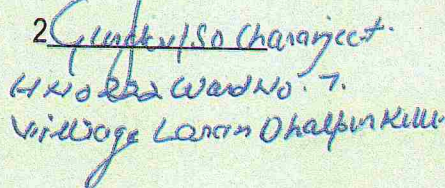 2 S/o Charanjeet.
H No 222 Ward No. 7.
Village Dhalpur Kullu